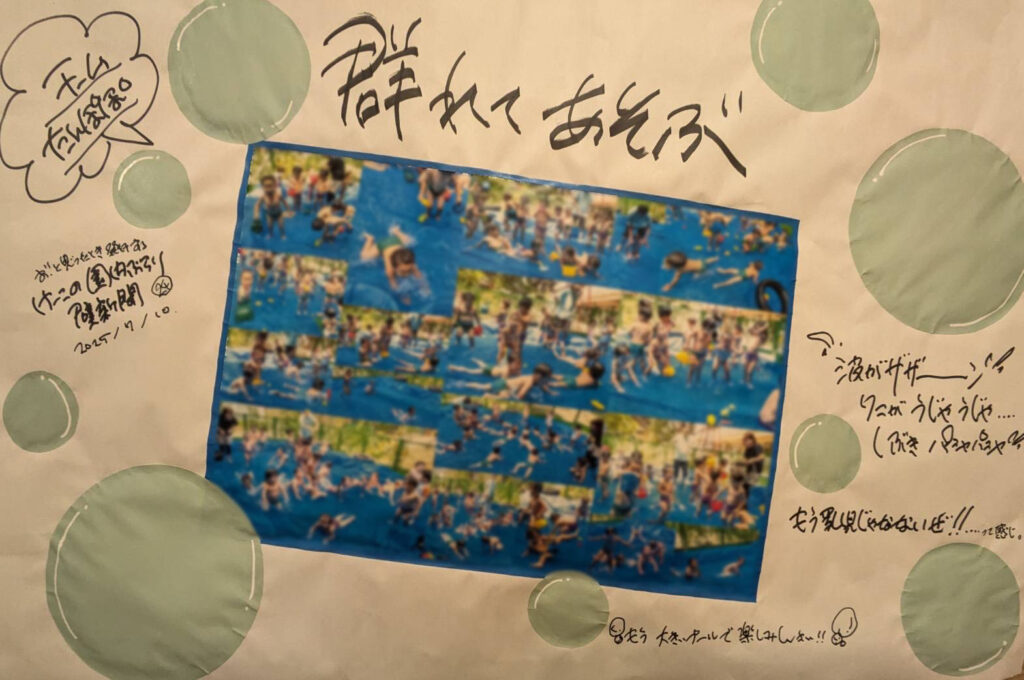 チーム
たんぽぽ。
群れてあそぶ
あ!と思ったとき発行する
けっこの園内ぶらり
壁新聞
2025/7/10.
波がザザーーン
りこが うじゃうじゃ....
しぶき パシャパシャ
もう乳児じゃなないぜ!!.....って感じ。
もう 大きいプールで 楽しみしよぉ!!